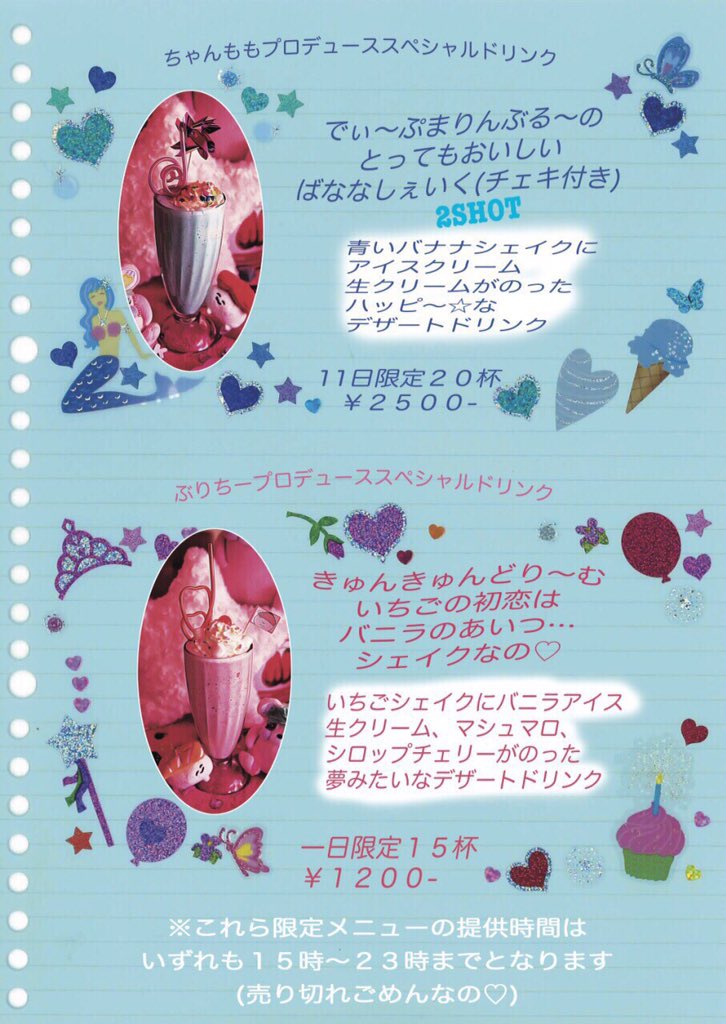 ちゃんももプロデューススペシャルドリンク
でぃ〜ぷまりんぶる〜の
とってもおいしい
ばななしぇいく(チェキ付き)
2SHOT
青いバナナシェイクに
アイスクリーム
生クリームがのった
ハッピ〜☆な
デザートドリンク
11日限定２０杯
￥２５００-
ぶりちープロデューススペシャルドリンク
きゅんきゅんどり〜む
いちごの初恋は
バニラのあいつ…
シェイクなの♡
いちごシェイクにバニラアイス
生クリーム、マシュマロ、
シロップチェリーがのった
夢みたいなデザートドリンク
一日限定１５杯
￥１２００-
※これら限定メニューの提供時間は
いずれも１５時〜２３時までとなります
(売り切れごめんなの♡)